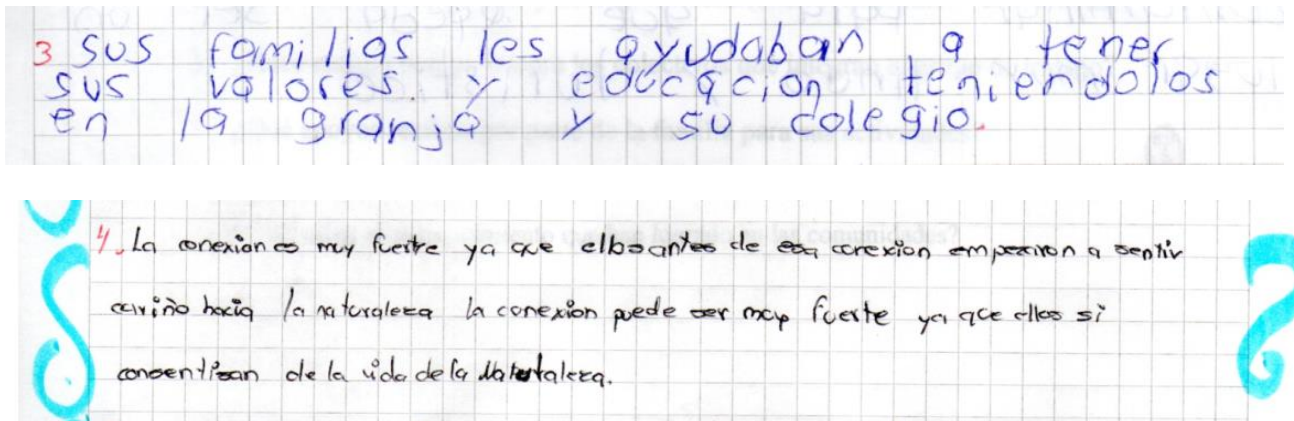 3 sus familias les ayudaban a tener
sus valores. y educacion teniendolos
en la granja y su colegio.
4. La conexion es muy fuerte ya que ellos antes de esa conexion empezaron a sentir
cariño hacia la naturaleza la conexion puede ser muy fuerte ya que ellos si
consentisan de la vida de la